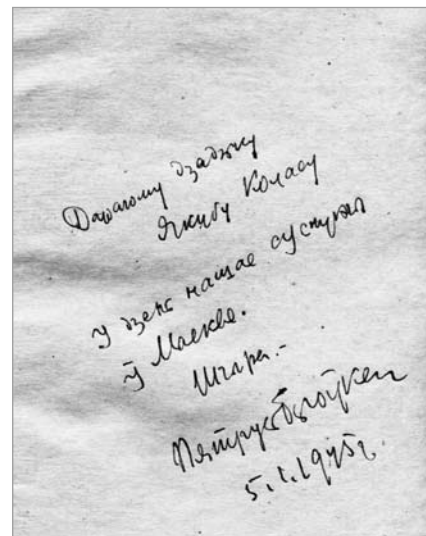 Дарагому дзядзьку
Якубу Коласу
У дзень нашае сустрэчы
ў Маскве.
Шчыра.-
Пятрусь Броўка
5.I.1945г.